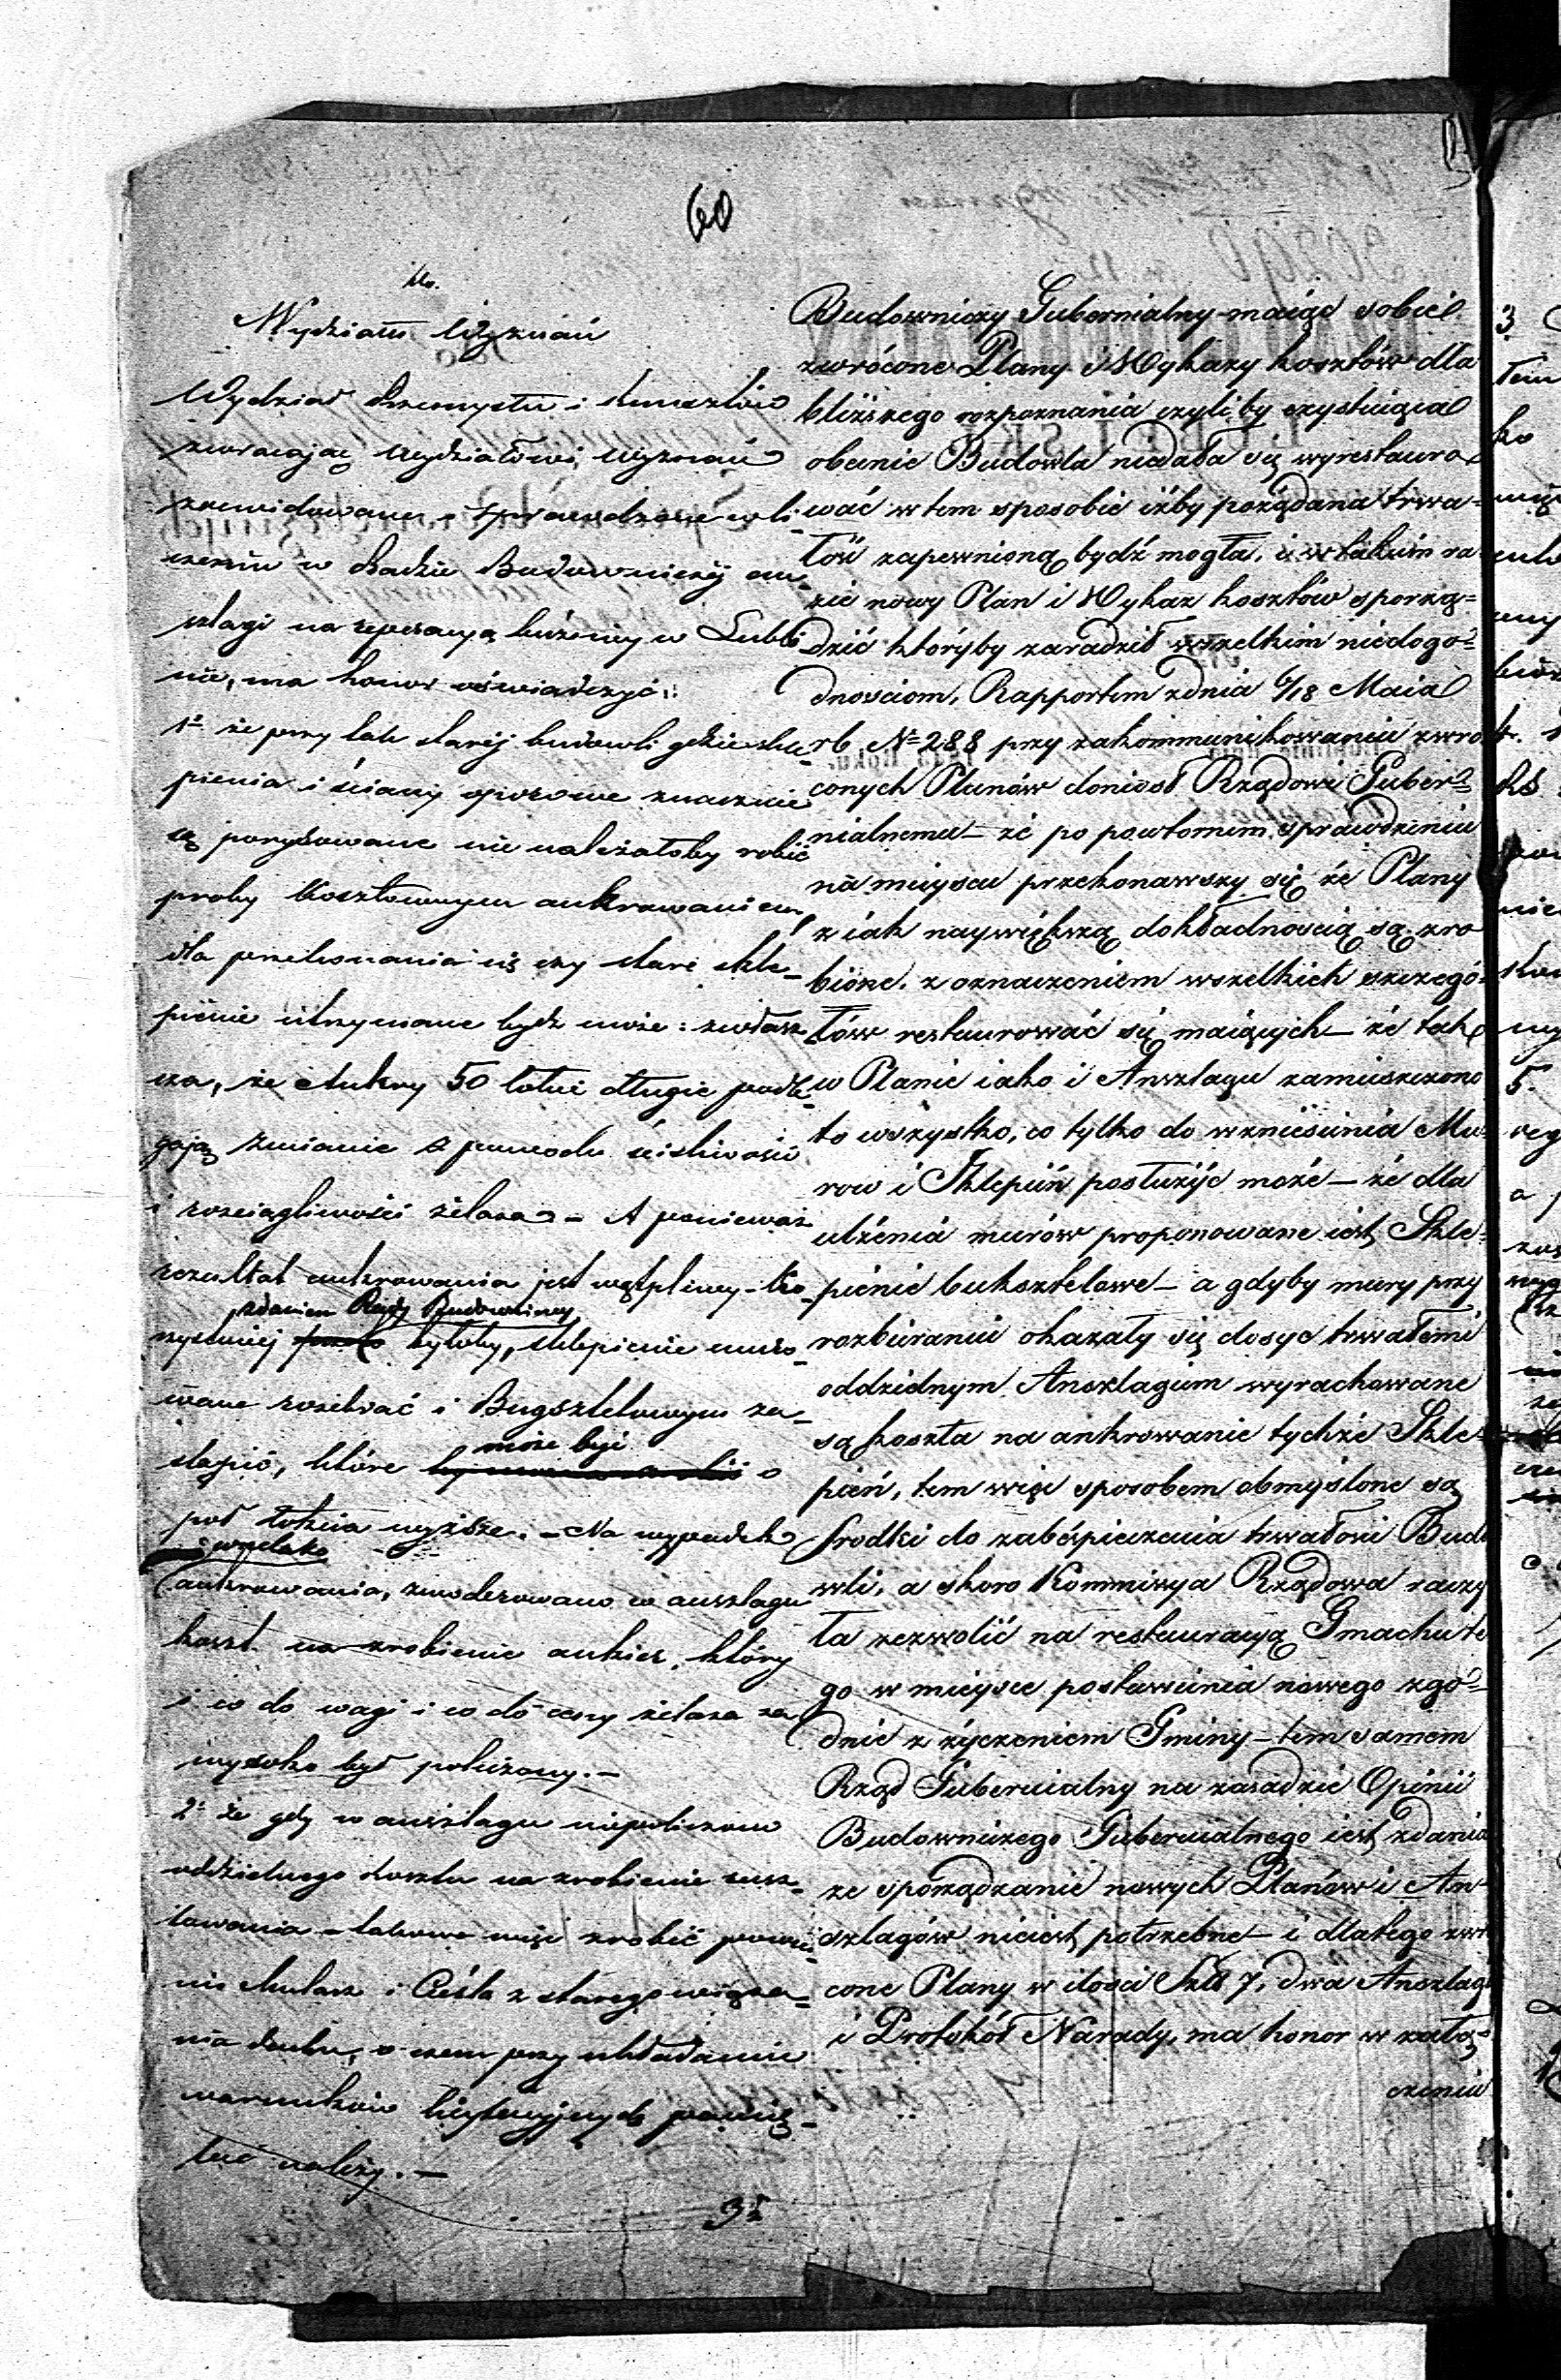 60
Do
Wydziału Wyznań
Wydział Przemysłu i Kunsztów
zwracając Wydziałowi Wyznań
zrewidowane i sprawdzone w li-
czeniu w Radzie Budowniczej an-
szlagi na reperacyą bużnicy w Lubli-
nie, ma honor oświadczyć:
1º że przy tak starej budowli gdzie skle-
pienia i ściany oporowe znacznie
są porysowane nie należałoby robić
proby kosztownym ankrowaniem,
dla przekonania się czy stare skle-
pienie utrzymane bydź może: zwłasz-
cza, że Ankry 50 łokci długie podle-
gają zmianie z powodu ściśliwości
i rozciągliwości żelaza. – A ponieważ
rezultat ankrowania jest wątpliwy – ko-
zdaniem Rady Budowniczej
rzystniej byłoby, sklepienie muro-
wane rozebrać i Bugsztelowym za-
może być
stąpić, które o
pół łokcia wyższe. – Na wypadek
wszelako
ankrowania, zmoderowano w anszlagu
koszt na zrobienie ankier, który
i co do wagi i co do ceny żelaza za
wysoko był policzony. –
2º że gdy w anszlagu niepoliczono
oddzielnego kosztu na zrobienie rusz-
towania – takowe więc zrobić powi-
nien Mularz i Cieśla z starego wiąza-
nia dachu, o czem przy układaniu
warunków licytacyjnych pamię-
tać należy. –
3º
Budowniczy Gubernialny maiąc sobie
zwrócone Plany i Wykazy kosztów dla
bliższego rozpoznania czyliby czystuiąca
obecnie Budowla niedała się wyrestauro
wać w tem sposobie iżby pożądana trwa-
łość zapewnioną bydź mogła, i w takim ra-
zie nowy Plan i Wykaz kosztów sporzą-
dzić któryby zaradził wszelkim niedogo-
dnosciom, Rapportem z dnia 6/18 Maia
rb Nº 288 przy zakommunikowaniu zwró
conych Planów doniosł Rządowi Guber-
nialnemu – że po powtornem sprawdzeniu
na mieyscu przekonawszy się że Plany
z iak naywiększą dokładnoscią są zro
bione, z oznaczeniem wszelkich szczegó-
łów restaurować się maiących – że tak
w Planie iako i Anszlagu zamieszczono
to wszystko, co tylko do wzniesienia Mu-
row i Sklepień posłużyć może – że dla
ulżenia murów proponowane iest Skle-
pienie buksztelowe – a gdyby mury przy
rozbieraniu okazały się dosyc trwałemi
oddzielnym Anszlagiem wyrachowane
są koszta na ankrowanie tychże Skle-
pień, tem więc sposobem obmyślone są
srodki do zabespieczenia trwałości Budo
wli, a skoro Kommissya Rządowa raczy
ła zezwolić na restauracyą Gmachu te
go w mieysce postawienia nowego zgo-
dnie z życzeniem Gminy – tem samem
Rząd Gubernialny na zasadzie Opinii
Budowniczego Gubernialnego iest zdania
że sporządzanie nowych Planów i An-
szlagów nieiest potrzebne – i dlatego zwró
cone Plany w ilosci Szt 7, dwa Anszlagi
i Protokół Narady, ma honor w załą-
czeniu